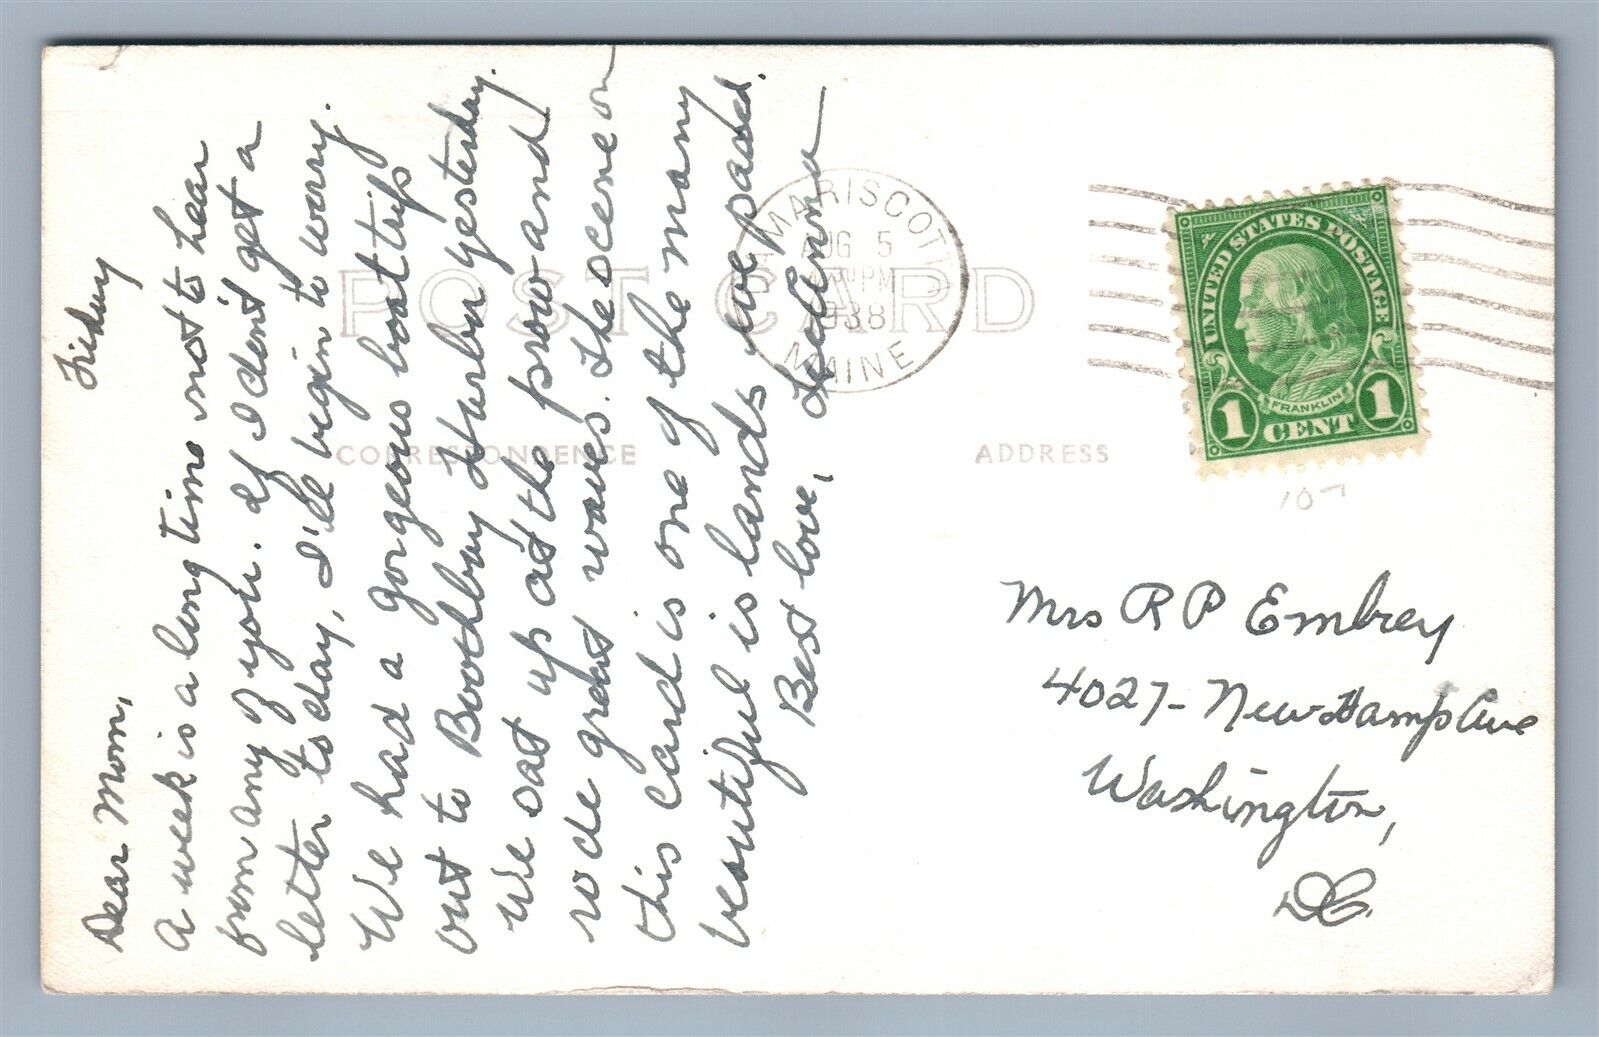 Friday
Dear Mom,
A week is a long time not to hear
from any of you. If I don't get a
letter today, I'll begin to worry.
We had a gorgeous boat trip
out to Boothbay Harbor yesterday.
We sat up at the prow and
rode great waves. The ocene on
this card is one of the many
beautiful islands we passed.
Best love,
POST CARD
CORRESPONDENCE
ADDRESS
DAMARISCOTTA
AUG 5
PM
1938
MAINE
UNITED STATES POSTAGE
FRANKLIN
1 CENT 1
107
Mrs R P Embrey
4027- New Hamp Ave
Washington,
DC.